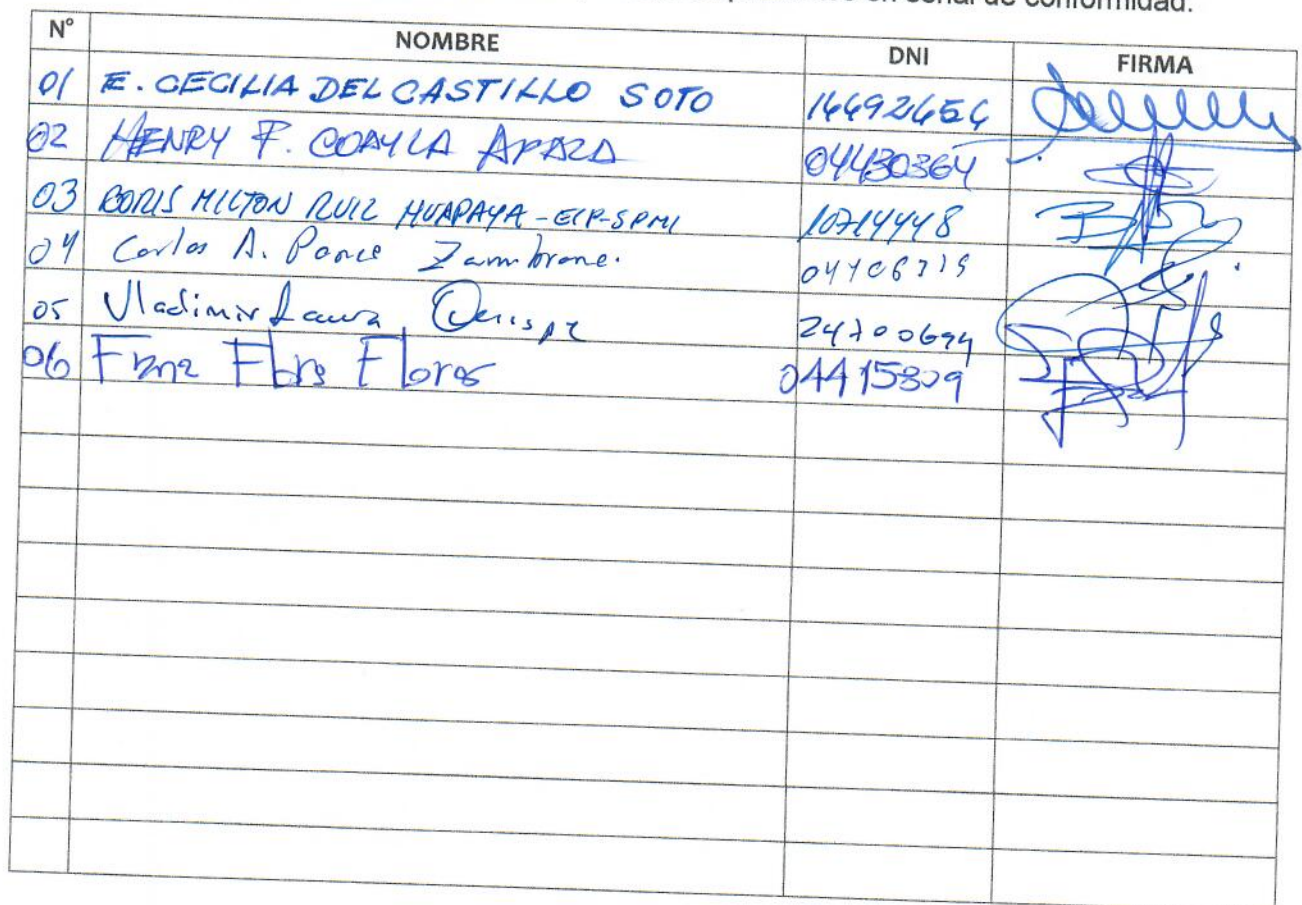 en señal de conformidad.
N° NOMBRE DNI FIRMA
01 E. CECILIA DEL CASTILLO SOTO
02 HENRY F. COAYLA APAZA 04430364
03 BORIS MILTON RUIZ HUAPAYA - EIP-SPMI 10714448
04 Carlos A. Ponce Zambrano.
05 Vladimir Laura Quispe 24700694
06 Flores Flores 04415309